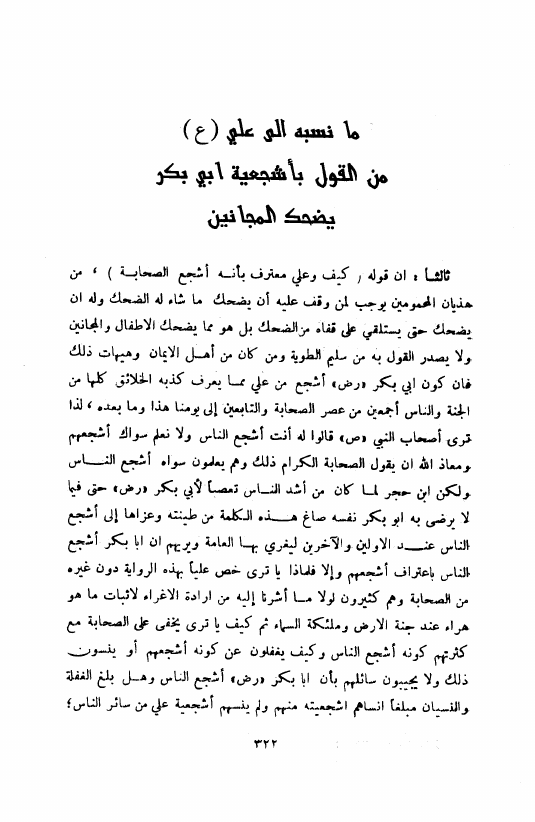 ما نسبه الى علي (ع)
من القول بأشجعية ابي بكر
يضحك المجانين
ثالثاً : ان قوله ( كيف وعلي معترف بأنــه أشجع الصحابــة ) ، من
هذيان المحمومين يوجب لمن وقف عليه أن يضحك ما شاء له الضحك وله ان
يضحك حتى يستلقي على قفاه من الضحك بل هو مما يضحك الاطفال والمجانين
ولا يصدر القول به من سليم الطوية ومن كان من أهــل الايمان وهيهات ذلك
فان كون ابي بكر «رض» أشجع من علي ممــا يعرف كذبه الخلائق كلها من
الجنة والناس أجمعين من عصر الصحابة والتابعين إلى يومنا هذا وما بعده ، لذا
ترى أصحاب النبي «ص» قالوا له أنت أشجع الناس ولا نعلم سواك أشجعهم
ومعاذ الله ان يقول الصحابة الكرام ذلك وهم يعلمون سواه أشجع النــاس
ولكن ابن حجر لمــا كان من أشد النــاس تعصباً لأبي بكر «رض» حتى فيما
لا يرضى به ابو بكر نفسه صاغ هــذه الكلمة من طينته وعزاها إلى أشجع
الناس عنــد الاولين والآخرين ليغري بهــا العامة ويريهم ان ابا بكر أشجع
الناس باعتراف أشجعهم وإلا فلماذا يا ترى خص علياً بهذه الرواية دون غيره
من الصحابة وهم كثيرون لولا مــا أشرنا إليه من ارادة الاغراء لاثبات ما هو
هراء عند جنة الارض وملئكة السماء ثم كيف يا ترى يخفى على الصحابة مع
كثرتهم كونه أشجع الناس وكيف يغفلون عن كونه أشجعهم أو ينسون
ذلك ولا يجيبون سائلهم بأن ابا بكر «رض» أشجع الناس وهــل بلغ الغفلة
والنسيان مبلغاً انساهم اشجعيته منهم ولم ينسهم أشجعية علي من سائر الناس؟
٣٢٢